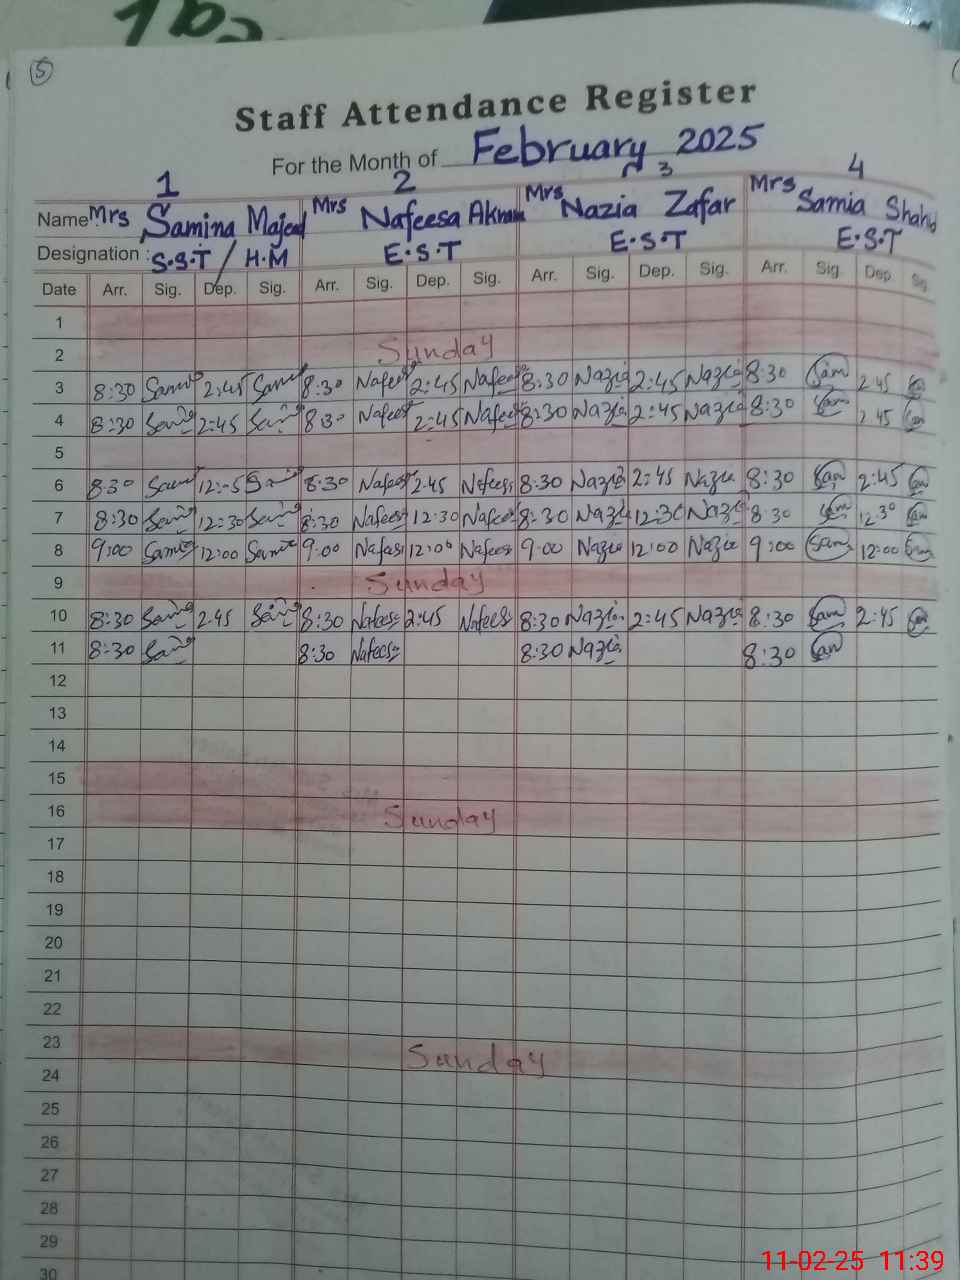 5
Staff Attendance Register
For the Month of February 2025
1 2 3 4
Name: Mrs Samina Majeed Mrs Nafeesa Akram Mrs Nazia Zafar Mrs Samia Shahd
Designation: S.S.T / H.M E.S.T E.S.T E.S.T
Date Arr. Sig. Dep. Sig. Arr. Sig. Dep. Sig. Arr. Sig. Dep. Sig. Arr. Sig. Dep. Sig
1
2 Sunday
3 8:30 2:45 8:30 Nafeesa 2:45 Nafeesa 8:30 Nazia 2:45 Nazia 8:30 Sam 2 45
4 8:30 2:45 8:30 Nafeesa 2:45 Nafeesa 8:30 Nazia 2:45 Nazia 8:30 Sam 2 45
5
6 8:30 8:30 Nafees 2:45 Nafeesa 8:30 Nazia 2:45 Nazia 8:30 Sam 2:45
7 8:30 12:30 8:30 Nafees 12:30 Nafees 8:30 Nazia 12:30 Nazia 8:30 Sam 12:30
8 9:00 12:00 9:00 Nafeesa 12:00 Nafees 9:00 Nazia 12:00 Nazia 9:00 Sam 12:00
9 Sunday
10 8:30 2:45 8:30 Nafees 2:45 Nafees 8:30 Nazia 2:45 Nazia 8:30 Sam 2:45
11 8:30 8:30 Nafees 8:30 Nazia 8:30 Sam
12
13
14
15
16 Sunday
17
18
19
20
21
22
23 Sunday
24
25
26
27
28
29
30
11-02-25 11:39